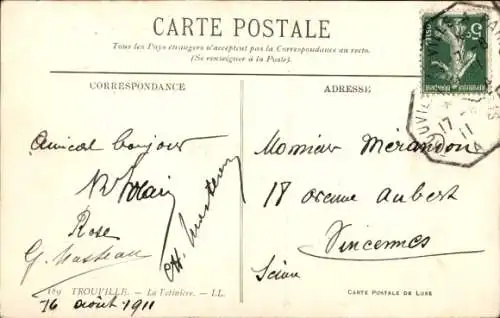 CARTE POSTALE
Tous les Pays étrangers n'acceptent pas la Correspondance au recto.
(Se renseigner à la Poste).
CORRESPONDANCE
Amical bonjour
Rose
G. Masteau
H. Masteau
189 TROUVILLE. — La Potinière. — LL.
16 août 1911
ADRESSE
5c
POSTES
REPUBLIQUE FRANCAISE
17 - 8
11
Monsieur Mérandon
18 avenue Aubert
Vincennes
Seine
CARTE POSTALE DE LUXE